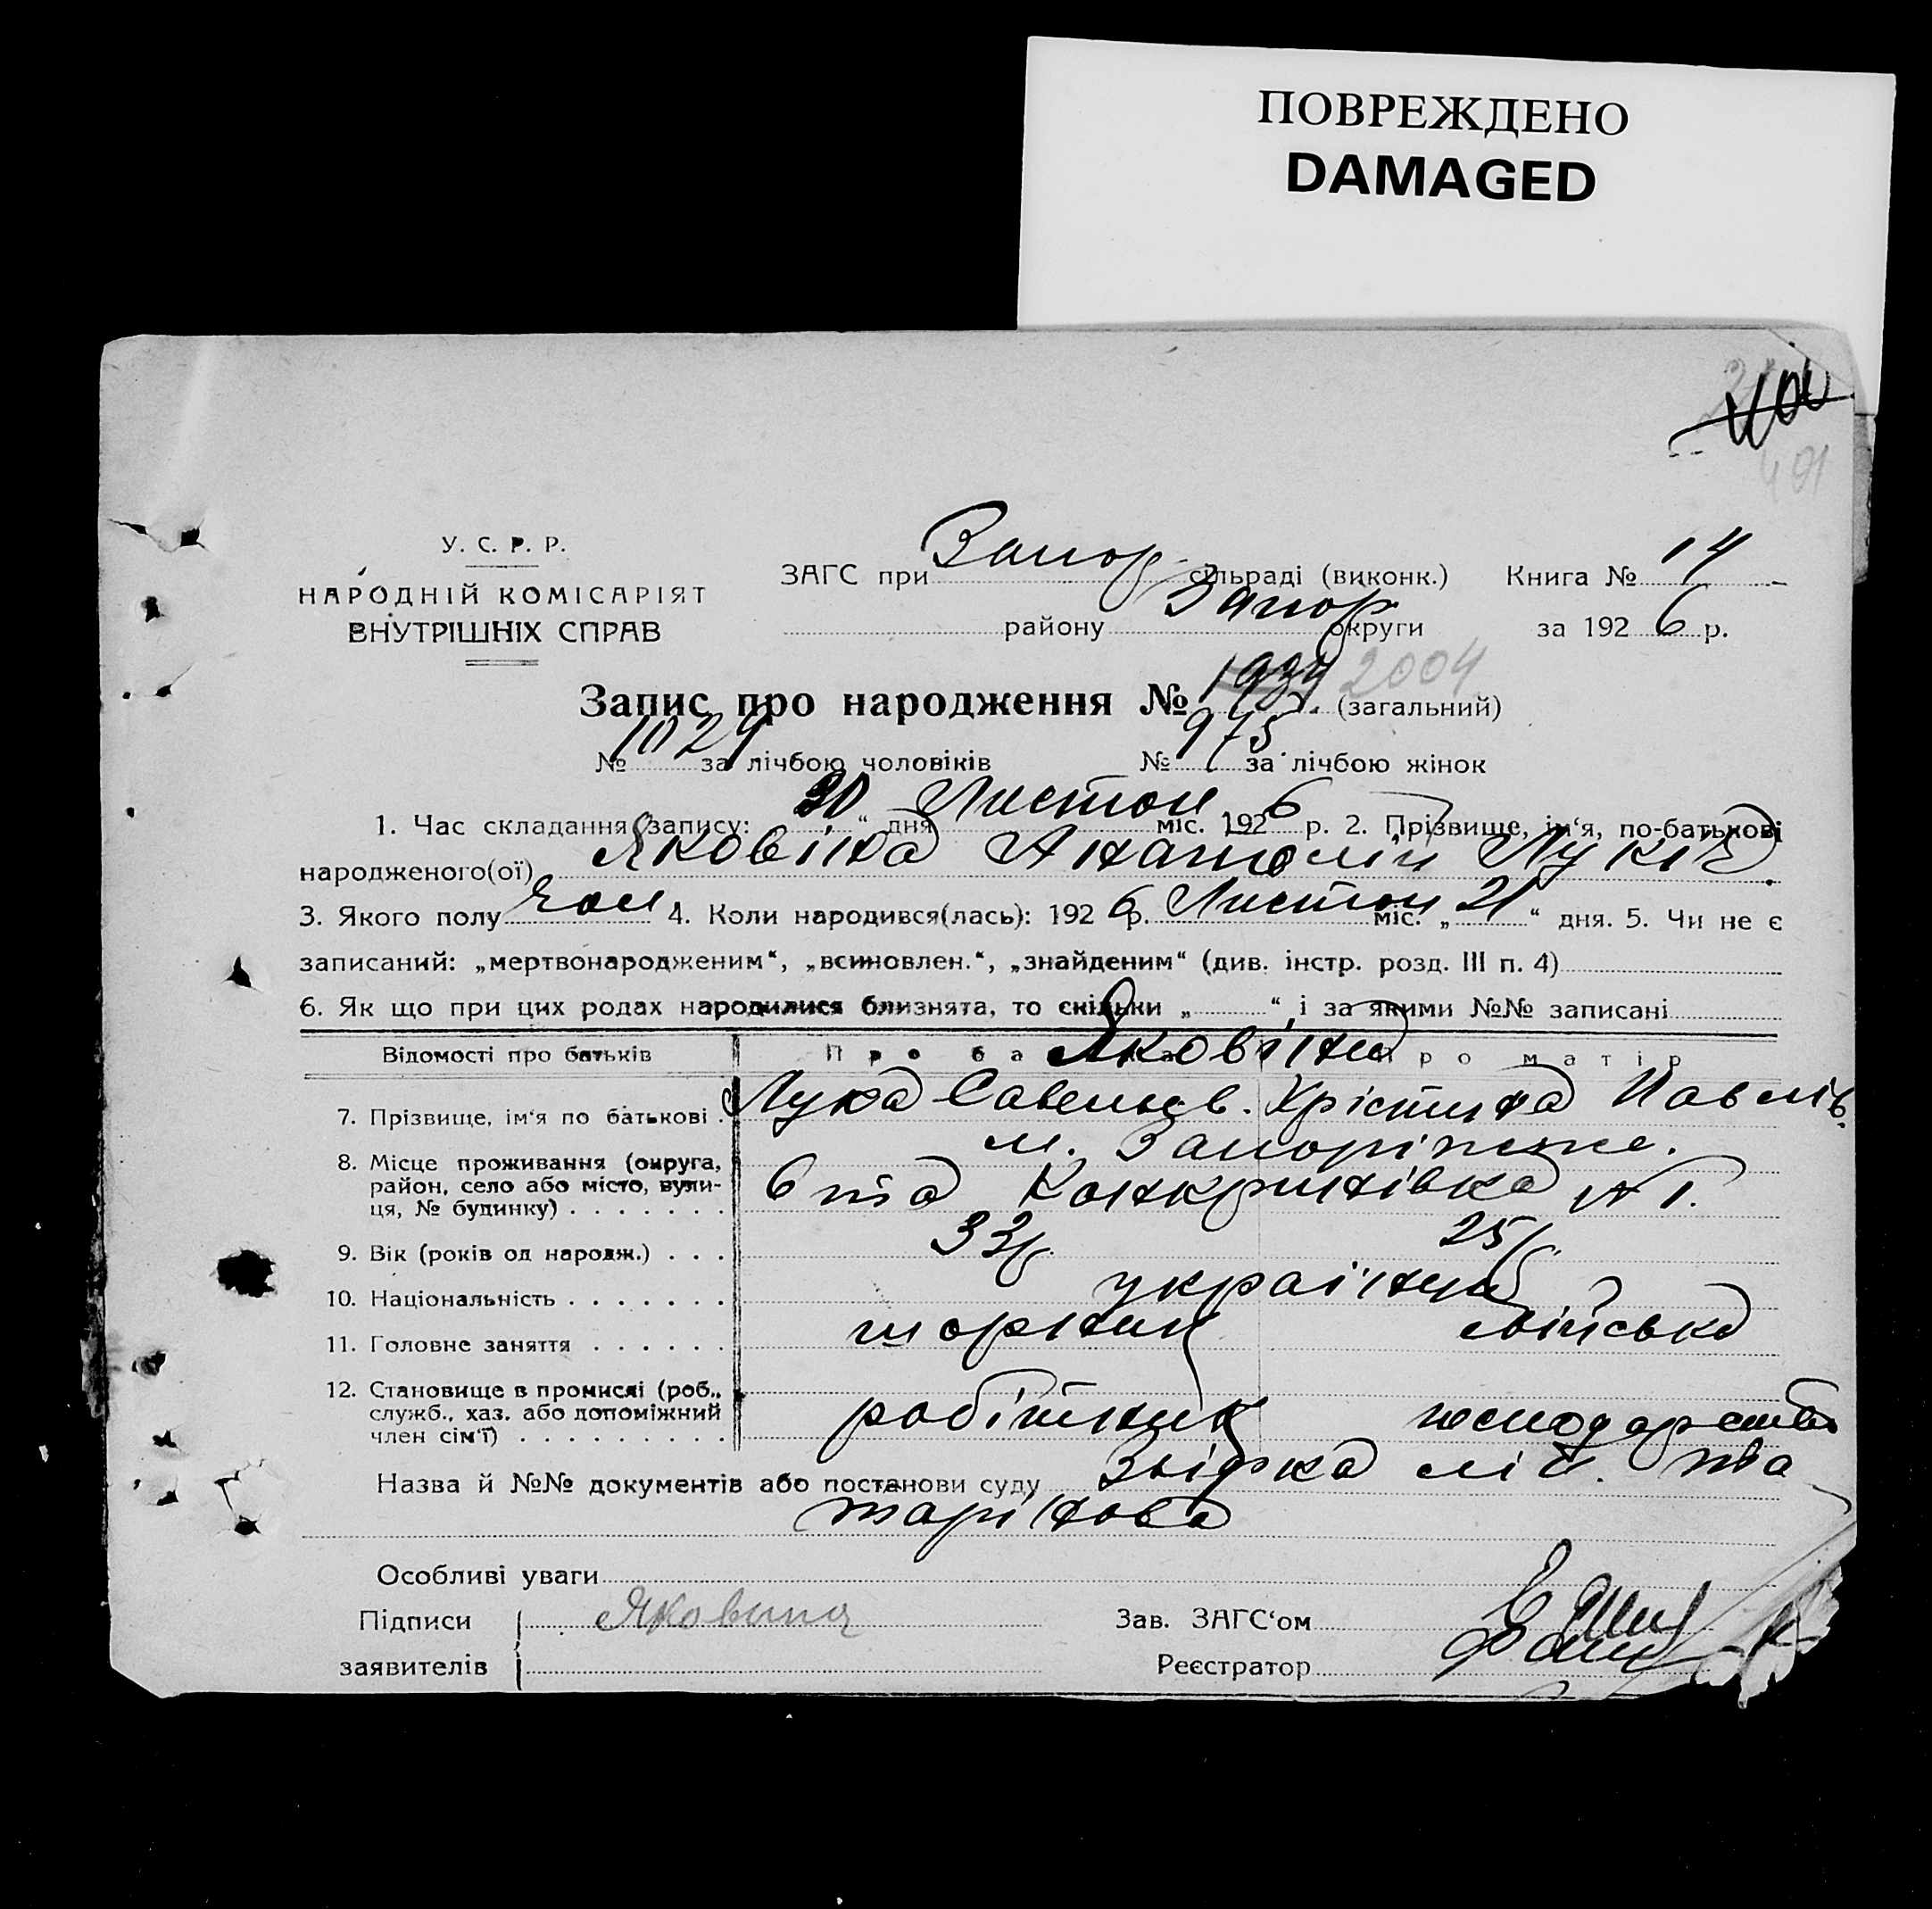 ПОВРЕЖДЕНО
DAMAGED
401
У. С. Р. Р.
НАРОДНІЙ КОМІСАРІЯТ
ВНУТРІШНІХ СПРАВ
ЗАГС при Запор. сільраді (виконк.) Книга № 14
району Запор. округи за 1926 р.
Запис про народження № 2004 (загальний)
№ 1029 за лічбою чоловіків № 975 за лічбою жінок
1. Час складання запису: 30 “ дня Листоп. міс. 1926 р. 2. Прізвище, ім‘я, по-батькові
народженого(ої) Яковіна Анатолій Лукич.
3. Якого полу чол. 4. Коли народився(лась): 1926 р. Листоп міс. „ 21 “ дня. 5. Чи не є
записаний: „мертвонародженим“, „всиновлен.“, „знайденим“ (див. інстр. розд. III п. 4)
6. Як що при цих родах народилися близнята, то скільки „ “, і за якими №№ записані
Відомості про батьків Про батька Яковіни Про матір
7. Прізвище, ім‘я по батькові . Лука Савельєв. Хрістина Павлів.
8. Місце проживання (округа, м. Запоріжже.
район, село або місто, вули-
ця, № будинку) . . . . . . .
9. Вік (років од народж.) . . . 33 р. 25 р.
10. Національність . . . . . . . україн
11. Головне заняття . . . . . . шорник
12. Становище в промислі (роб.,
служб., хаз. або допоміжний робітник
член сім‘ї) . . . . . . . . .
Назва й №№ документів або постанови суду
Особливі уваги
Підписи Яковина Зав. ЗАГС‘ом
заявителів Реєстратор